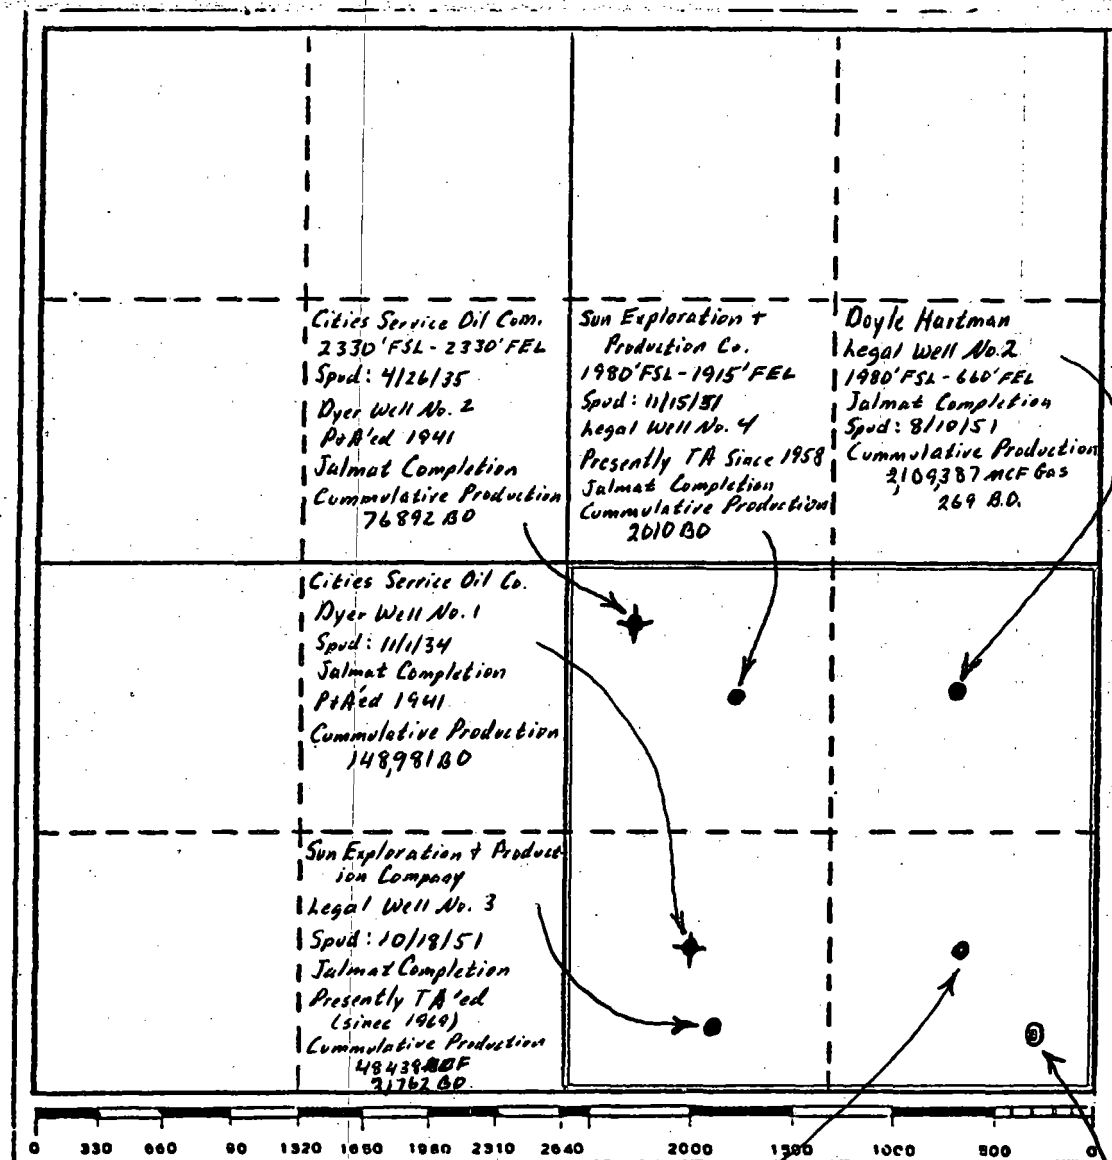 Cities Service Oil Com.
2330' FSL - 2330' FEL
Spud: 4/26/35
Dyer Well No. 2
P+A'ed 1941
Jalmat Completion
Cummulative Production
76892 BO
Sun Exploration +
Production Co.
1980' FSL - 1915' FEL
Spud: 11/15/51
Legal Well No. 4
Presently TA Since 1958
Jalmat Completion
Cummulative Production
2010 BO
Doyle Hartman
Legal Well No. 2
1980' FSL - 660' FEL
Jalmat Completion
Spud: 8/10/51
Cummulative Production
2,109,387 MCF Gas
269 B.O.
Cities Service Oil Co.
Dyer Well No. 1
Spud: 11/1/34
Jalmat Completion
P+A'ed 1941
Cummulative Production
148,981 BO
Sun Exploration + Product-
ion Company
Legal Well No. 3
Spud: 10/18/51
Jalmat Completion
Presently TA'ed
(since 1969)
Cummulative Production
48438 MCF
21762 BO
0 330 660 90 1320 1650 1980 2310 2640 2000 1500 1000 500 0